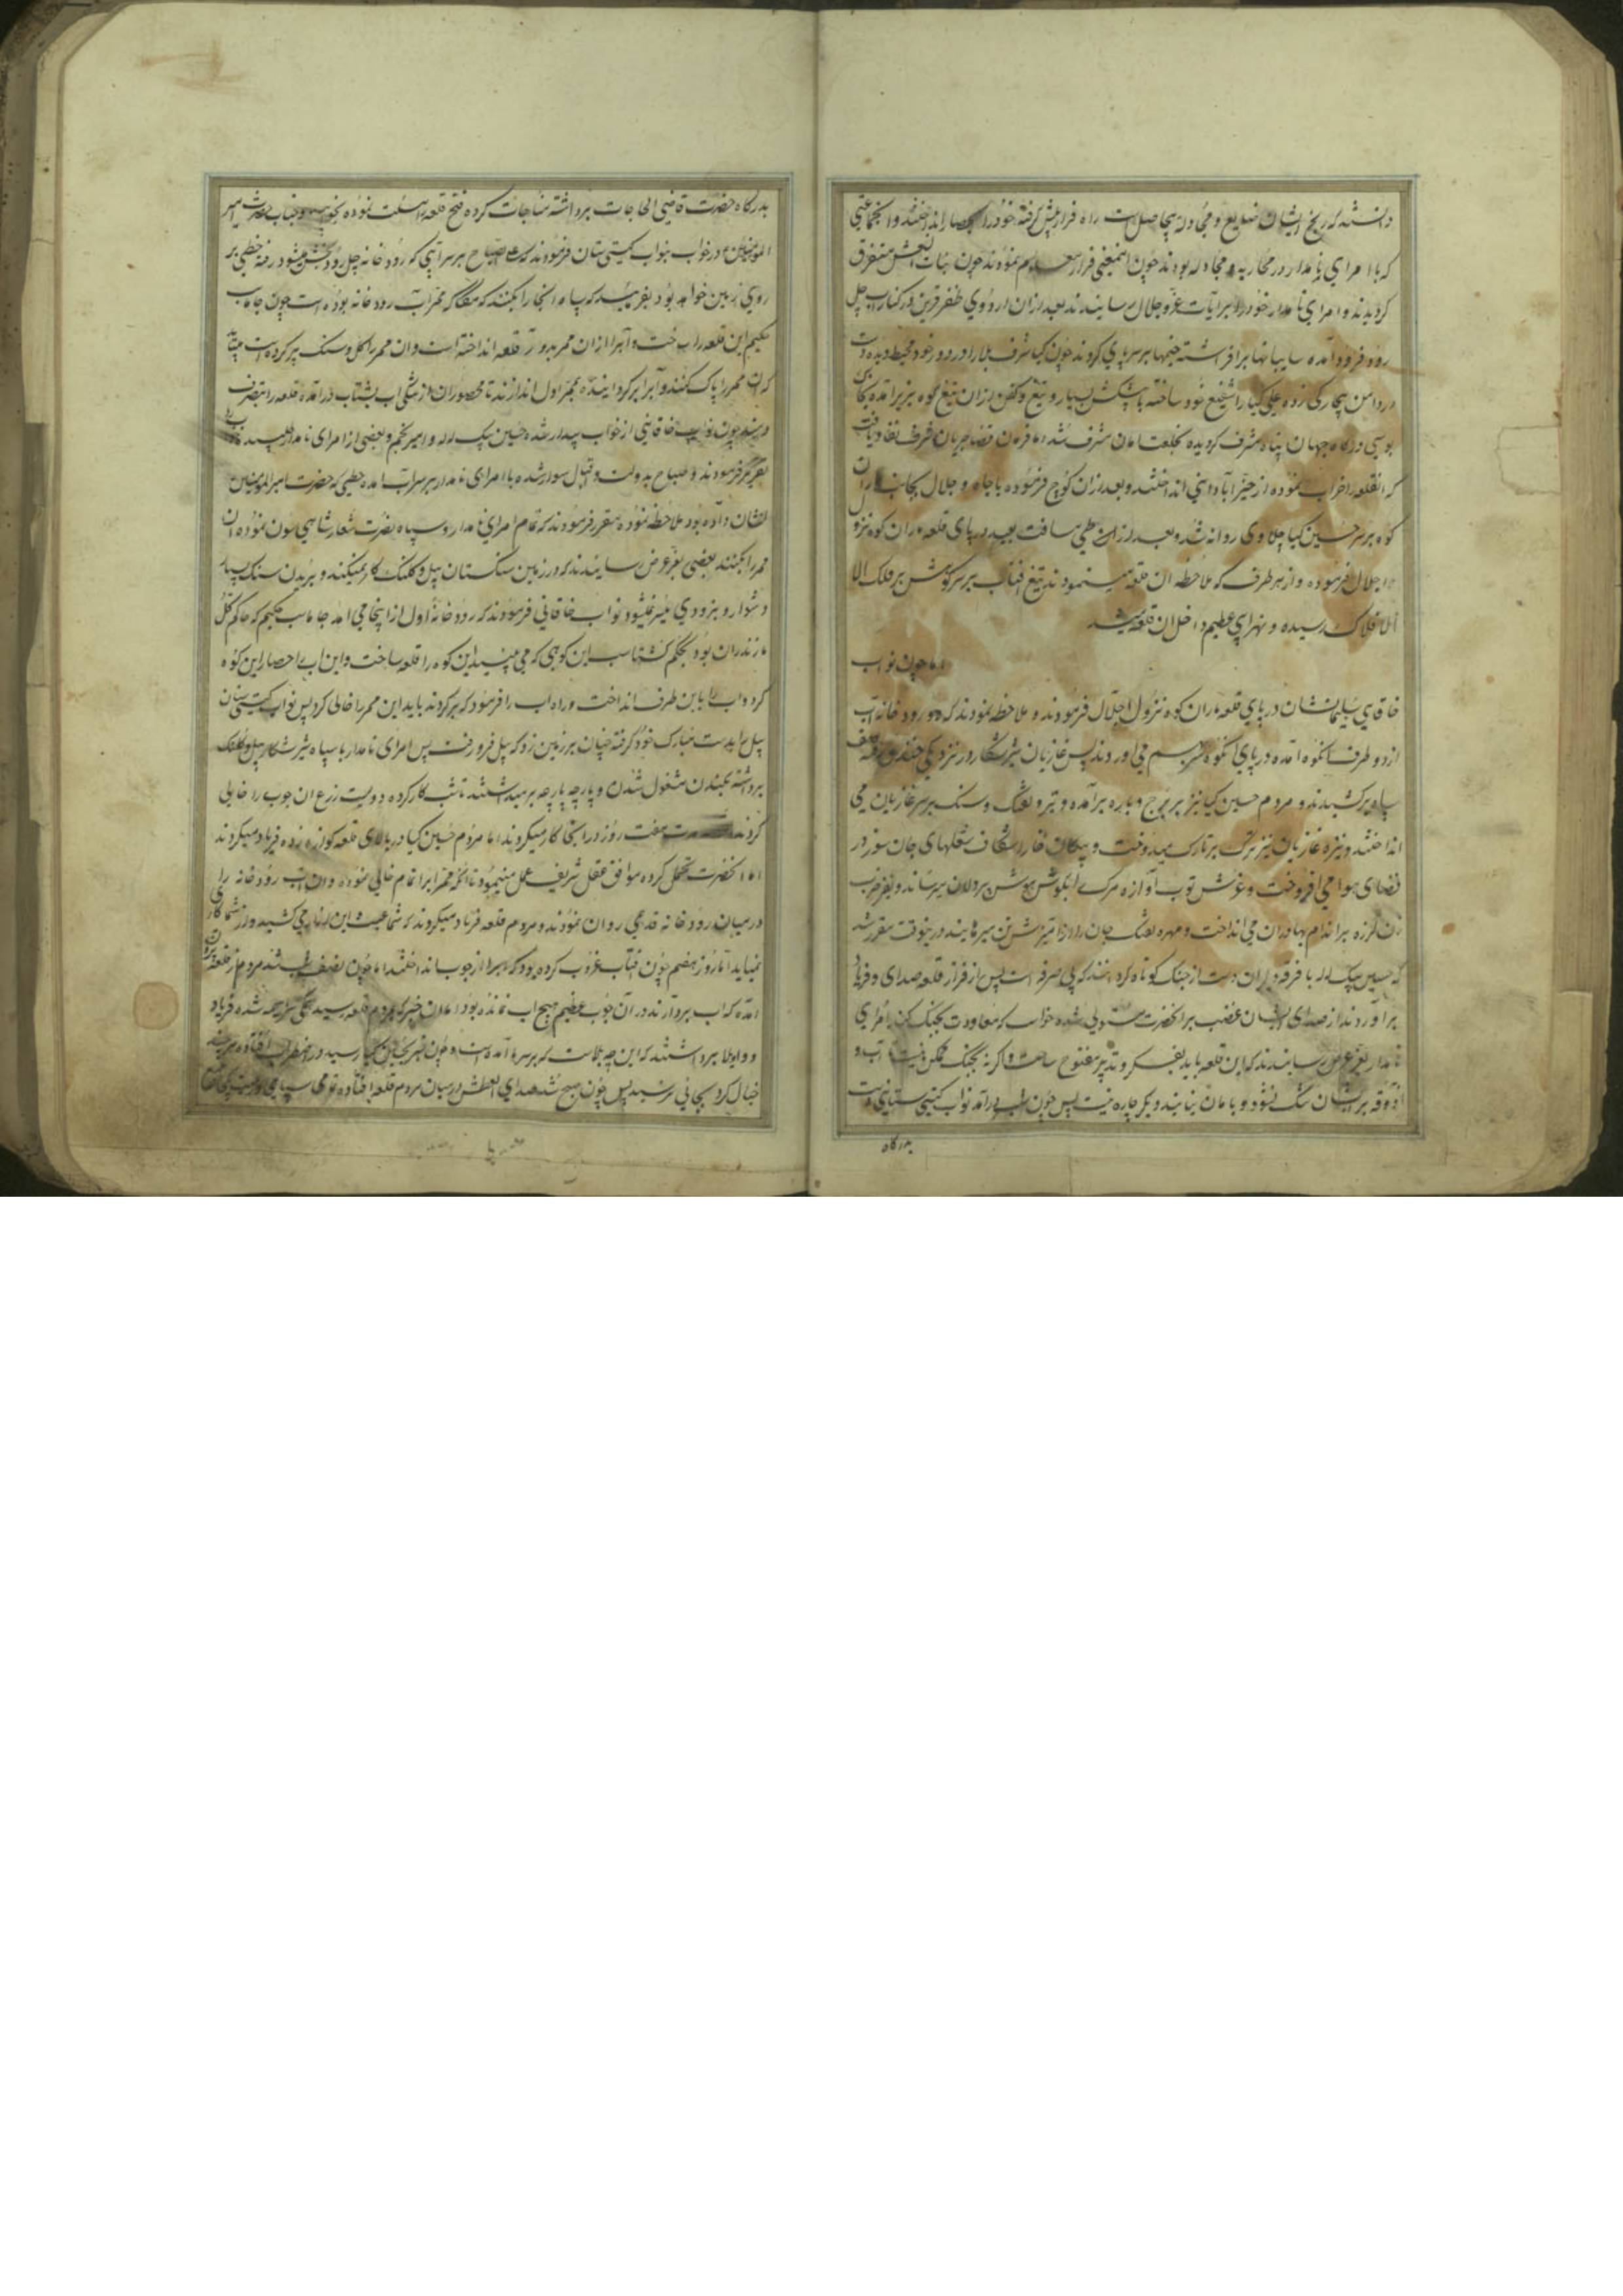 دانستند که رنج ایشان ضایع و مجادله بیحاصل است راه فرار پیش گرفته خود را بحصار انداختند و انجماعتی
که با امرای نامدار در محاربه و مجادله بودند چون اینمعنی فرار معلوم نمودند چون بنات النعش متفرق
کردیدند و امرای نامدار خود را برایات عز و جلال رسانیدند بعد از ان اردوی ظفر قرین در کنار اب حبل
رود فرود آمده سایبانها برافراشته خیمها بر سر پای کردند چون کیا شرف بلا را در دور خود محیط دیده دست
در دامن بیچارگی زده علی کیا را شفیع خود ساخته با پیشکش بسیار و تیغ و کفن از ان تیغ کوه بزیر آمده
بوسی درگاه جهان پناه مشرف کردیده بخلعت امان مشرف شد اما فرمان قضا جریان شرف نفاذ یافت
که انقلعه را خراب نموده از حیز آبادانی انداختند و بعد از ان کوچ فرموده با جاه و جلال بجانب
کوه بر سر حسین کیا چلاوی روانه شد و بعد از ان طی مسافت بعید در پای قلعه ماران کوه نزو
اجلال فرموده و از هر طرف که ملاحظه ان قلعه مینمودند تیغ افتاب بر سر کوهش بر فلک الا
افلاک رسیده و نهرابی عظیم داخل ان قلعه میشد
اما چون نواب
خاقانی سلیمانشان در پای قلعه ماران کوه نزول اجلال فرمودند و ملاحظه نمودند که دو رودخانه آب
از دو طرف انکوه آمده در پای انکوه بهم می اوردند پس غازیان شیر شکار در نزدیکی خندق رفته صف
سپاه برکشیدند و مردم حسین کیا نیز بر برج و باره برآمده و تیر و تفنک و سنک بر سر غازیان می
انداختند و نیزه غازیان نیز ترک بر تارک میدوخت و پیکان خارا شکاف شعلهای جان سوز در
فضای هوا می افروخت و غرش توپ آوازه مرک بگوش هوش پر دلان میرساند و نفیر ضرب
زن لرزه بر اندام بهادران می انداخت و مهره تفنک جان را از امیزش تن میرهانید درینوقت مقرر شد
که حسین بیک لله با فرقه دلیران دست از جنک کوتاه کردانند که بی صرفه است پس از فراز قلعه صدای و فریاد
برآوردند از صدای ایشان غضب بر انحضرت مستولی شده خواست که معاودت بجنک کند امرای
نامدار بعز عرض رسانیدند که این قلعه باید بفکر و تدبیر مفتوح ساخت و اگر نه بجنک ممکن نیست آب و
آذوقه بر ایشان تنک نشود و بامان نیایند و دیگر چاره نیست پس چون شب درآمد نواب کیتی ستانی دست
بدرگاه
بدرگاه حضرت قاضی الحاجات برداشته مناجات کرده فتح قلعه را مسئلت نموده بخوابید و جناب حضرت امیر
المومنین در خواب بنواب کیتی ستان فرمودند که علی الصباح بر سر آبی که رودخانه حبل رود میشود رفته خطی بر
روی زمین خواهد بود بفرمایید که سپاه انجا را بکنند که منفذگه ممر آب رودخانه بوده است چون جاماسب
حکیم این قلعه را ساخت و آبرا از ان ممر بدور قلعه انداخته است و ان ممر را بگل و سنک پر کرده است میباید
که ان ممر را پاک کنند و آبرا برگردانیده بممر اول اندازند تا محصوران از تشنگی اب بشتاب درآمده قلعه را بتصرف
دهند چون نواب خاقانی از خواب بیدار شده حسین بیک لله و امیر نجم و بعضی از امرای نامدار طلبیده
تقریر فرمودند و صباح بدولت و اقبال سوار شده با امرای نامدار بر سر آب امده خطی که حضرت امیر المومنین
نشان داده بود ملاحظه نموده مقرر فرمودند که تمام امرای نامدار و سپاه نصرت شعار شاهی سون نموده ان
ممر را بکنند بعضی بعز عرض رسانیدند که در زمین سنگستان بیل و کلنک کار نمیکند و بریدن سنک بسیار
دشوار و بزودی میسر نمیشود نواب خاقانی فرمودند که رودخانه اول از اینجا می امد جاماسب حکیم که حاکم کل
مازندران بود بحکم گشتاسب این کوهی که می بینید این کوه را قلعه ساخت و این اب را حصار این کوه
کرد و اب را باین طرف انداخت و راه اب را فرمود که پر کردند باید این ممر را خالی کرد پس نواب کیتی ستان
بیل را بدست مبارک خود گرفته چنان بر زمین زد که بیل فرو رفت پس امرای نامدار با سپاه شیر شکار بیل و کلنک
برداشته بکندن مشغول شدن و پارچه پارچه برمیداشتند تا شب کار کرده دویست زرع ان جوب را خالی
کردند مدت هفت روز در انجا کار میکردند اما مردم حسین کیا در بالای قلعه کوازه زده فریاد میکردند
اما انحضرت تحمل کرده موافق عقل شریف عمل مینمودند تا انکه ممر را بر اتمام خالی نموده و ان آب رودخانه را
در میان رودخانه قدیمی روان نمودند و مردم قلعه فریاد میکردند که شما عبث این ازار می کشید و از شما کاری
نمیاید تا روز هفتم چون افتاب غروب کرده بود که آبرا از جوب انداختند اما چون نصف شب شد مردم از قلعه بیرون
آمده که اب بردارند در آن جوب عظیم هیچ اب نمانده بود اما ان خبر که بمردم قلعه رسید همگی سراسیمه شده فریاد
و واویلا برداشتند که این چه بلاست که بر سر ما آمده است و چون خبر بحسین کیا رسید در اضطراب افتاده هر چند
خیال کرد بجائی نرسید پس چون صبح شد صدای العطش در میان مردم قلعه افتاده تمامی سپاهی و رعیت